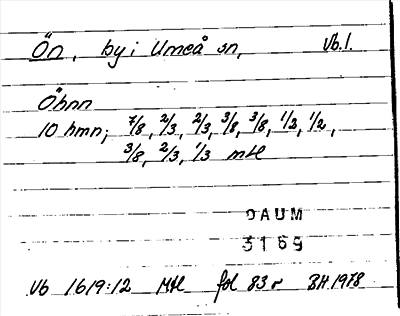 Ön, by i Umeå sn, Vb.l.
Öbnn
10 hmn; 7/8, 2/3, 2/3, 3/8, 3/8, 1/2, 1/2,
3/8, 2/3, 1/3 mtl
DAUM
3169
Vb 1619:12 Mtl fol 83 r BH.1978